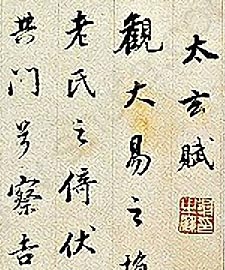 太玄賦
觀大易之損
老氏之倚伏
共門兮察吉